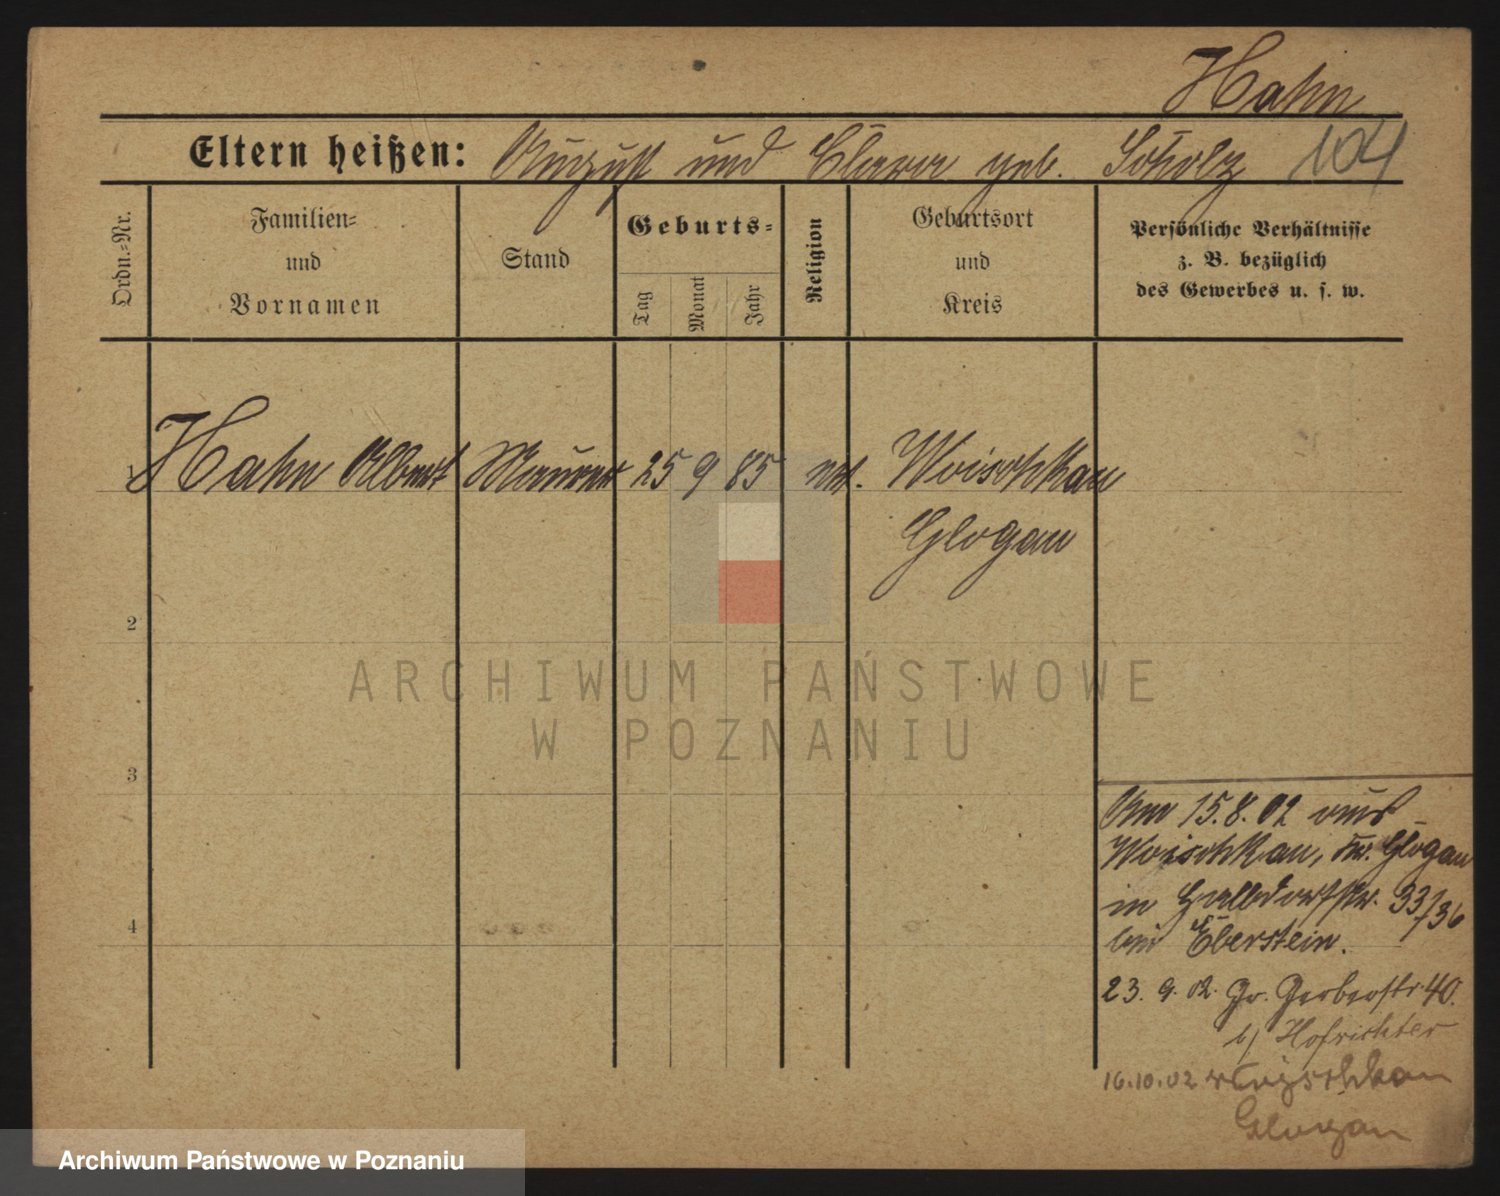 Hahn
Eltern heißen: August und Clara geb. Scholz 104
Ordn.-Nr.
Familien-
und
Vornamen
Stand
Geburts-
Tag
Monat
Jahr
Religion
Geburtsort
und
Kreis
Persönliche Verhältnisse
z. B. bezüglich
des Gewerbes u. s. w.
1 Hahn Albert Maurer 25 9 85 Woischkau
Glogau
2
3
4
Am 15.8.02 aus
Woischkau, Kr. Glogau
in Halbdorfstr. 33/36
bei Eberstein.
23. 9. 02. Gr. Gerberstr. 40.
b/ Hofrichter
16.10.02 Woischkau
Glogau
ARCHIWUM PAŃSTWOWE
W POZNANIU
Archiwum Państwowe w Poznaniu